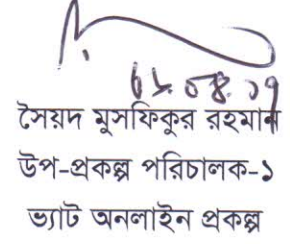 সৈয়দ মুসফিকুর রহমান
উপ-প্রকল্প পরিচালক-১
ভ্যাট অনলাইন প্রকল্প